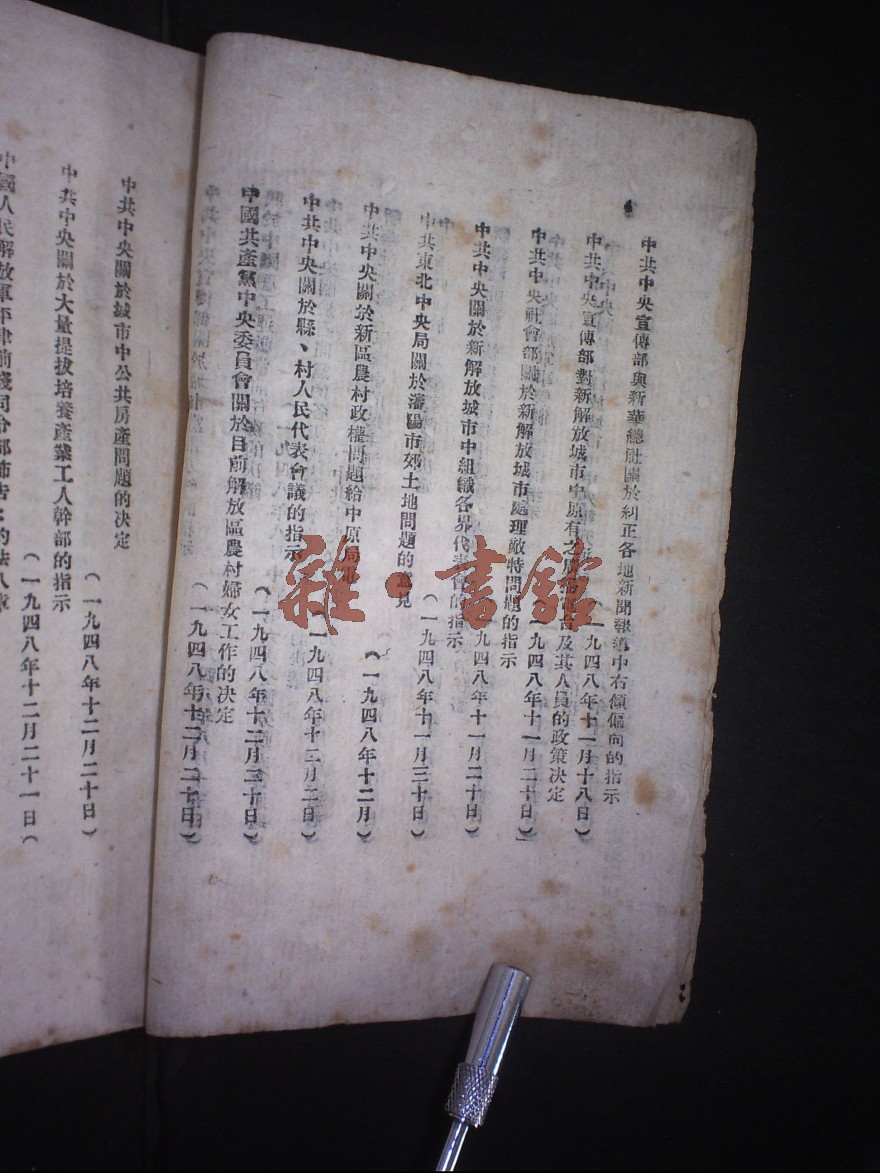 中共中央宣傳部與新華總社關於糾正各地新聞報道中右傾偏向的指示
（一九四八年十一月十八日）
中共中央宣傳部對新解放城市中原有之
及其人員的政策決定
（一九四八年十一月二十日）
中共中央社會部關於新解放城市處理敵特問題的指示
（一九四八年十一月二十日）
中共中央關於新解放城市中組織各界代表會的指示
（一九四八年十一月三十日）
中共東北中央局關於瀋陽市郊土地問題的意見
（一九四八年十二月）
中共中央關於新區農村政權問題給中原局
（一九四八年十二月二日）
中共中央關於縣、村人民代表會議的指示
（一九四八年十二月二十日）
中國共產黨中央委員會關於目前解放區農村婦女工作的决定
（一九四八年十二月二十日）
中共中央關於城市中公共房產問題的决定
（一九四八年十二月二十日）
中共中央關於大量提拔培養產業工人幹部的指示
（一九四八年十二月二十一日）
中國人民解放軍平津前綫司令部佈告：約法八章
雜·書館